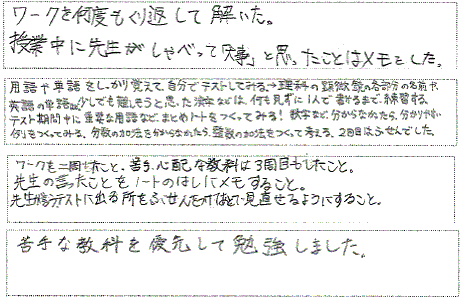 ワークを何度もくり返して解いた。
授業中に先生がしゃべって「大事」と思ったことはメモをした。
用語や単語をしっかり覚えて、自分でテストしてみる→理科の顕微鏡の各部分の名前や
英語の単語など少しでも難しそうと思った漢字などは、何も見ずに1人で書けるまで、練習する
テスト期間中に重要な用語など、まとめノートをつくってみる! 数学など、分からなかったら、分かりやすい
例をつくってみる、分数の加法を分からなかったら、整数の加法をつくって考える、2回目はふせんでした。
ワークを二周したこと、苦手、心配な教科は3周目もしたこと。
先生の言ったことをノートのはしにメモすること。
先生がテストに出る所をふせんつけなど、見直せるようにすること。
苦手な教科を優先して勉強しました。